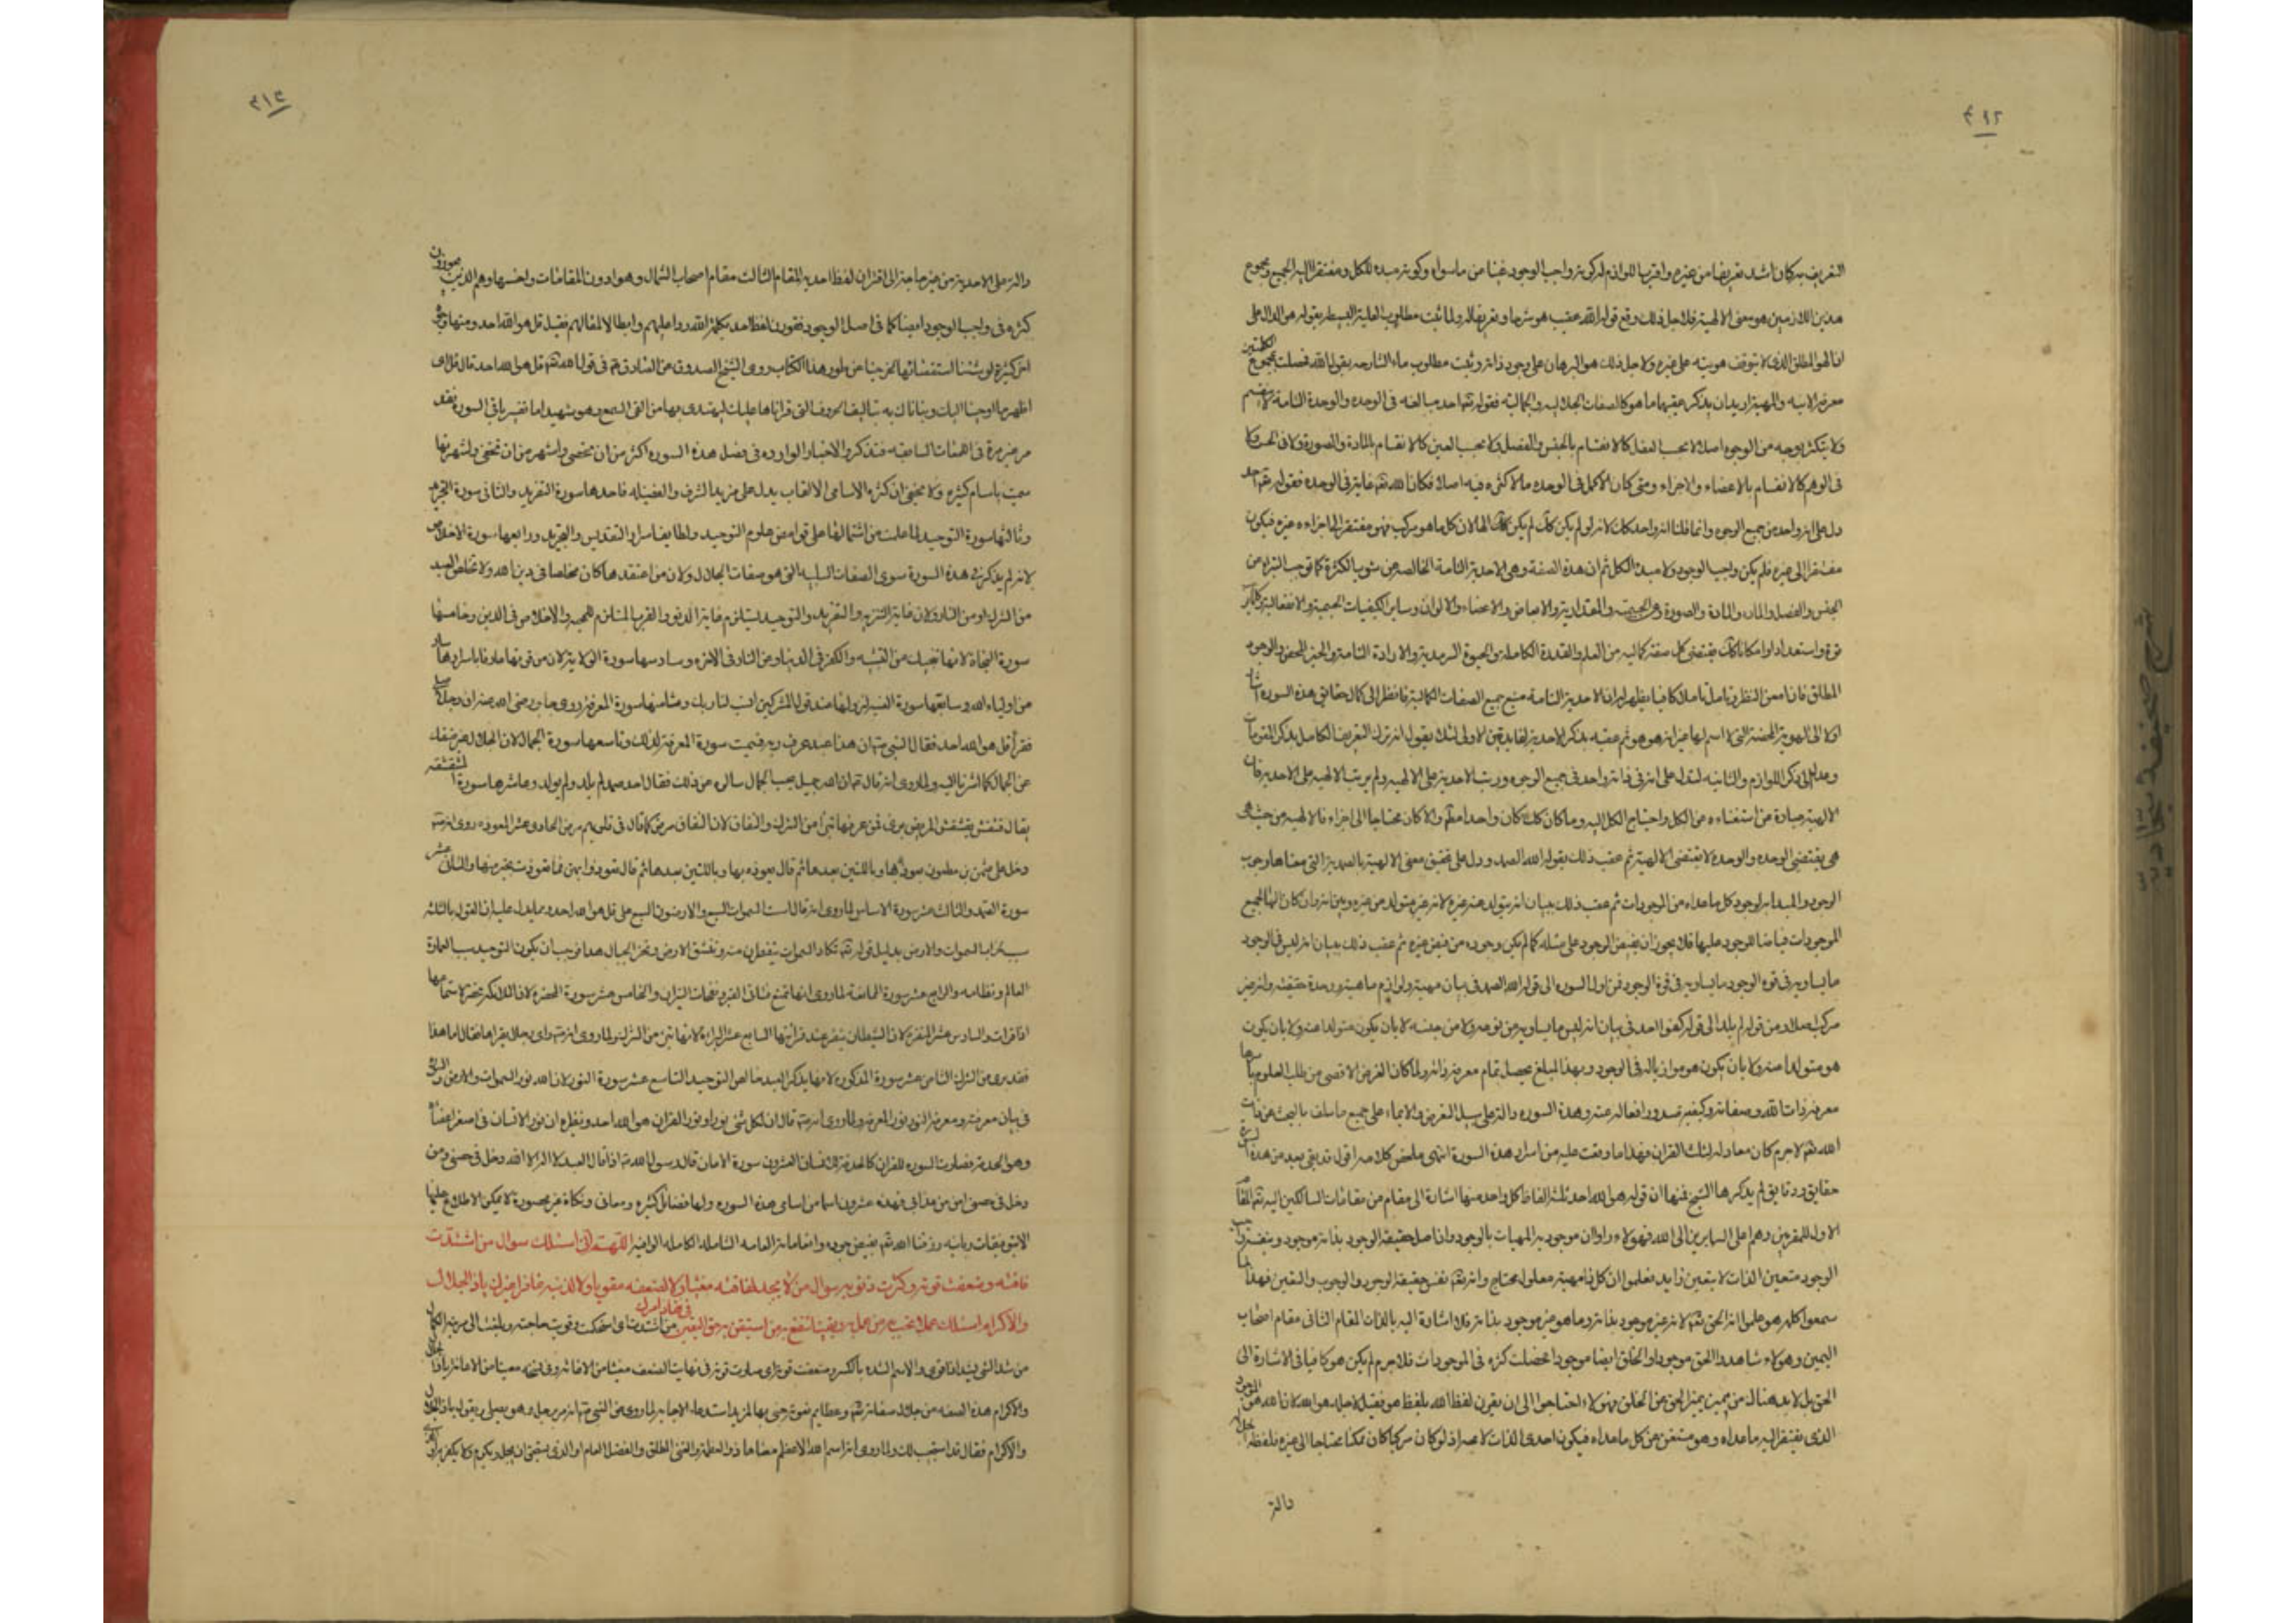 ٤١٢
التعريف به كان اشد تعريفا من غيره واقرب اللوازم له كونه واجب الوجود غنيا عن ماسواه وكونه مبدء للكل ومفتقرا اليه الجميع ومجموع
هذين اللازمين هو معنى الالهية فلاجل ذلك وقع قوله الله عقيب هو شرحا وتعريفا له ولما ثبت مطلوب الهلية البسيطة بقوله هو الدال على
انه الهو المطلق الذى لا يتوقف هويته على غيره ولاجل ذلك هو البرهان على وجود ذاته وثبت مطلوب ماء الشارحه بقوله الله فحصلت بمجموع الكلمتين
معرفة الانيه والمهية اريد ان يذكر عقيبهما ما هو كالصفات الجلاليه والجمالية فقوله تعالى احد مبالغه فى الوحده والوحدة التامة ما لا ينقسم
ولا يتكثر بوجه من الوجوه اصلا لا بحسب العقل كالانقسام بالجنس والفصل ولا بحسب العين كالانقسام بالمادة والصورة ولا فى الحس ولا
فى الوهم كالانقسام بالاعضاء والاجزاء ومتى كان الاكمل فى الوحده ما لا كثره فيه اصلا فكان الله تعالى غاية فى الوحده فقوله تعالى احد
دل على انه واحد من جميع الوجوه وانما قلنا انه واحد كذلك لانه لو لم يكن كذلك لم يكن الها لان كل ما هو مركب فهو مفتقر الى اجزاءه غيره فيكون
مفتقرا الى غيره فلم يكن واجب الوجود ولا مبدء الكل ثم ان هذه الصفة وهى الاحدية التامة الخالصه عن شوب الكثرة كما توجب التبراه عن
الجنس والفصل والمادة والصورة وعن الجسمية والمقدارية والابعاض والاعضاء والالوان وساير الكيفيات الحسية والانفعالية
قوة واستعداد او امكان كذلك يقتضى كل صفة كماليه من العلم والقدرة الكامله والحيوة السرمدية والارادة التامة والخير المحض والوجود
المطلق فان امعن النظر وتامل تاملا كافيا يظهر له ان الاحدية التامة منبع جميع الصفات الكمالية فانظر الى كمال حقايق هذه السوره اشار
اولا الى الهوية المحضة التى لا اسم لها غير انه هو هو ثم عقبه بذكر الاحدية لفايدتين الاولى لئلا يقول انه ترك التعريف الكامل بذكر المقومات
وعدل الى ذكر اللوازم والثانيه لتدل على انه فى ذاته واحد فى جميع الوجوه ورتب الاحدية على الالهيه ولم يرتب الالهيه على الاحدية فان
الالهية عبارة عن استغناءه عن الكل واحتياج الكل اليه وما كان كذلك كان واحدا مطلقا والا كان محتاجا الى اجزاءه فالالهية من حيث هى
هى يقتضى الوحده والوحده لا يقتضى الالهية ثم عقب ذلك بقوله الله الصمد ودل على تحقيق معنى الالهية بالصمدية التى معناها وجوب
الوجود والمبداية لوجود كل ما عداه من الوجودات ثم عقب ذلك ببيان انه لا يتولد عنه غيره لانه غير متولد من غيره وبين انه وان كان الها لجميع
الموجودات فياضا للوجود عليها فلا يجوز ان يفيض الوجود على مثله كما لم يكن وجوده من فيض غيره ثم عقب ذلك ببيان انه ليس فى الوجود
ما يساويه فى قوه الوجود فمن اول السوره الى قوله الله الصمد فى بيان مهيته ولوازم ماهيته ووحدة حقيقته وانه غير
مركب اصلا ومن قوله لم يلد الى قوله كفوا احد فى بيان انه ليس ما يساويه من نوعه ولا من جنسه لا بان يكون متولدا عنه ولا بان يكون
هو متولدا عنه ولا بان يكون هو موازيا له فى الوجود وبهذا المبلغ يحصل تمام معرفة ذاته ولما كان الغرض الاقصى من طلب العلوم باسرها
معرفة ذات الله وصفاته وكيفية صدور افعاله عنه وهذه السوره دالة على سبيل التعريض والايماء على جميع ما سلف بالبحث عن ذات
الله تعالى لا جرم كان معادله لثلث القران فهذا ما وقفت عليه من اسرار هذه السورة انتهى ملخص كلامه اقول قد بقى بعد من هذه السورة
حقايق ودقايق لم يذكرها الشيخ فمنها ان قوله هو الله احد ثلثة الفاظ كل واحد منها اشارة الى مقام من مقامات السالكين اليه تعالى المقام
الاول للمقربين وهم اعلى السايرين الى الله فهؤلاء راوا ان موجودية المهيات بالوجود وان اصل حقيقة الوجود بذاته موجود وبنفسه واجب
الوجود متعين الذات لا بتعين زايد فعلموا ان كل ذى مهية معلول محتاج وانه تعالى نفس حقيقة الوجود والوجوب والتعين فلهذا لما
سمعوا كلمة هو علموا انه الحق تعالى لانه غيره غير موجود بذاته وما هو غير موجود بذاته فلا اشارة اليه بالذات المقام الثانى مقام اصحاب
اليمين وهؤلاء شاهدوا الحق موجودا والخلق ايضا موجودا فحصلت كثره فى الموجودات فلا جرم لم يكن هو كافيا فى الاشارة الى
الحق بل لابد هناك من مميز يميز الحق عن الخلق فهؤلاء احتاجوا الى ان يقرن لفظ الله بلفظ هو فقيل لاجلهم هو الله لان الله هو الموجود
الذى يفتقر اليه ما عداه وهو مستغن عن كل ما عداه فيكون احدى الذات لا محه اذ لو كان مركبا كان ممكنا محتاجا الى غيره فلفظة الجلالة
دالة
٤١٣
دالة على الاحدية من غير حاجة الى اقتران لفظ احد به المقام الثالث مقام اصحاب الشمال وهو ادون المقامات واخسها وهم الذين يجوزون
كثرة فى واجب الوجود ايضا كما فى اصل الوجود فقورن لفظ احد بكلمة الله ردا عليهم وابطالا لمقالهم فقيل قل هو الله احد ومنها وجوه
اخر كثيرة لو شئنا استقصائها لخرجنا عن طور هذا الكتاب روى الشيخ الصدوق عن الصادق فى قول الله تعالى قل هو الله احد قال قل اى
اظهر ما اوحينا اليك ونبأناك به بتاليف الحروف التى قراناها عليك ليهتدى بها من القى السمع وهو شهيد اما تفسير باقى السورة فقد
مر غير مرة فى اللمعات السابقه فتذكر والاخبار الوارده فى فضل هذه السوره اكثر من ان تحصى واشهر من ان تخفى ولشهرتها
سميت باسام كثيره ولا يخفى ان كثره الاسامى الالقاب يدل على مزيد الشرف والفضيله فاحدها سورة التفريد والثانى سورة التجريد
وثالثها سورة التوحيد لما علمت من اشتمالها على غوامض علوم التوحيد ولطايف اسرار التقديس والتجريد ورابعها سورة الاخلاص
لانه لم يذكر فى هذه السورة سوى الصفات السلبيه التى هو صفات الجلال ولان من اعتقدها كان مخلصا فى دين الله ولانه تخلص العبد
من الشرك او من النار ولان غاية التنزيه والتفريد والتوحيد يستلزم غاية الدنو والقرب المستلزم للمحبه والاخلاص فى الدين وخامسها
سورة النجاة لانها تنجيك من التشبيه والكفر فى الدنيا ومن النار فى الاخره وسادسها سورة الولاية لان من قرئها عارفا باسرارها صار
من اولياء الله وسابعها سورة النسبة لنزولها عند قول المشركين انسب لنا ربك وثامنها سورة المعرفة روى جابر رضى الله عنه ان رجلا صلى
فقرأ قل هو الله احد فقال النبى ان هذا عبد عرف ربه فسميت سورة المعرفة لذلك وتاسعها سورة الجمال لان الجلال غير منفك
عن الجمال كما اشرنا اليه ولما روى انه قال ان الله جميل يحب الجمال سالوه عن ذلك فقال احد صمد لم يلد ولم يولد وعاشرها سورة المقشقشه
يقال قشقش المريض برئ فمن عرفها تبرأ من الشرك والنفاق لان النفاق مرض كما قال فى قلوبهم مرض الحادى عشر المعوذه روى انه
دخل على عثمن بن مظعون فعوذه بها وباللتين بعدها ثم قال تعوذ بهن فما تعوذت بخير منها والثانى عشر
سورة الصمد والثالث عشر سورة الاساس لما روى انه قال اسست السموات السبع والارضون السبع على قل هو الله احد ومما يدل عليه ان القول بالثلثة
سبب لخراب السموات والارض بدليل قوله تعالى تكاد السموات يتفطرن منه وتنشق الارض وتخر الجبال هدا فوجب ان يكون التوحيد سبب العمارة
العالم ونظامه والرابع عشر سورة المانعة لما روى انها تمنع فتان القبر ونفحات النيران والخامس عشر سورة المحضره لان الملائكه تحضر لاستماعها
اذا قرات والسادس عشر المنفره لان الشيطان ينفر عند قرائتها السابع عشر البراءة لانها تبرئ من الشرك ولما روى انه راى رجلا يقراها فقال اما هذا
فقد برئ من الشرك الثامن عشر سورة المذكره لانها يذكر العبد خالص التوحيد التاسع عشر سورة النور لان الله نور السموات والارض والسورة
فى بيان معرفته ومعرفة النور نور المعرفة ولما روى انه قال ان لكل شئ نورا ونور القران قل هو الله احد ونظيره ان نور الانسان فى اصغر اعضائه
وهو الحدقة فصارت السوره للقران كالحدقة للانسان العشرون سورة الامان قال رسول الله اذا قال العبد لا اله الا الله دخل فى حصنى ومن
دخل فى حصنى امن من عذابى فهذه عشرون اسما من اسامى هذه السوره ولها فضائل كثيره ومعانى ونكاة غير محصورة لا يمكن الاطلاع عليها
الا بتوفيقات ربانيه رزقنا الله تعالى بفيض جوده وانعاماته العامه الشامله الكامله الوافيه اللهم انى اسئلك سوال من اشتدت
فاقته وضعفت قوته وكثرت ذنوبه سوال من لا يجد لفاقته مغيثا ولا لضعفه مقويا ولا لذنبه غافرا غيرك ياذا الجلال
والاكرام اسئلك عملا تحب به من عمل به ويقينا تنفع به من استيقن به حق اليقين فى نفاذ امرك من اشتدت اى استحكمت وقويت حاجته وبلغت الى مرتبة الكمال
من شد الشئ يشد اذا قوى والاسم الشده بالكسر وضعفت قوته اى صارت قوته فى نهايت الضعف مغيثا من الاغاثه وفى نسخه معينا من الاعانة ياذا الجلال
والاكرام هذه الصفه من جلال صفاته تعالى وعظايم نعوته جئ بها لمزيد استدعاء الاجابه لما روى عن النبى انه مر برجل وهو يصلى ويقول ياذا الجلال
والاكرام فقال قد استجيب لك ولما روى انه اسم الله الاعظم معناها ذو العظمة والغنى المطلق والفضل العام او الذى يستحق ان يجل ويكرم ولا يكفر به او
شرح صحيفه سجاديه